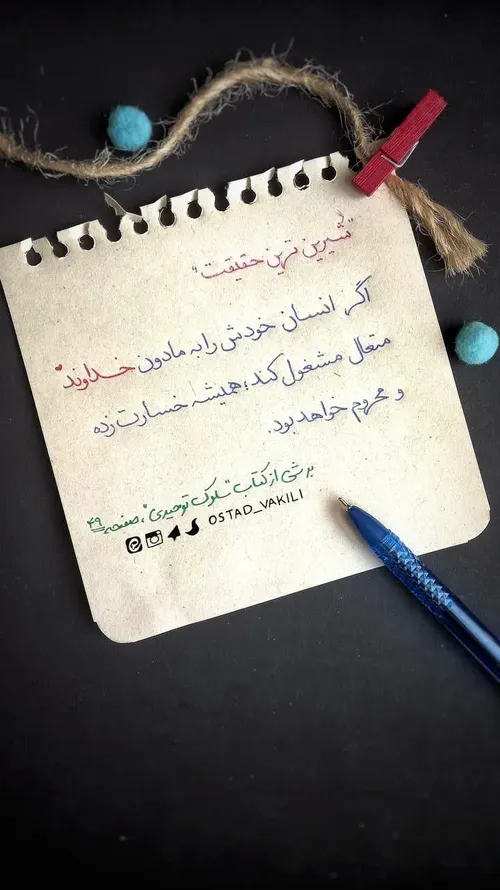 "شیرین ترین حقیقت"
اگر انسان خودش را به مادون خداوند
متعال مشغول کند؛ همیشه خسارت زده
و محروم خواهد بود.
برشی از کتاب "سلوک توحیدی"، صفحه ۴۹
OSTAD_VAKILI